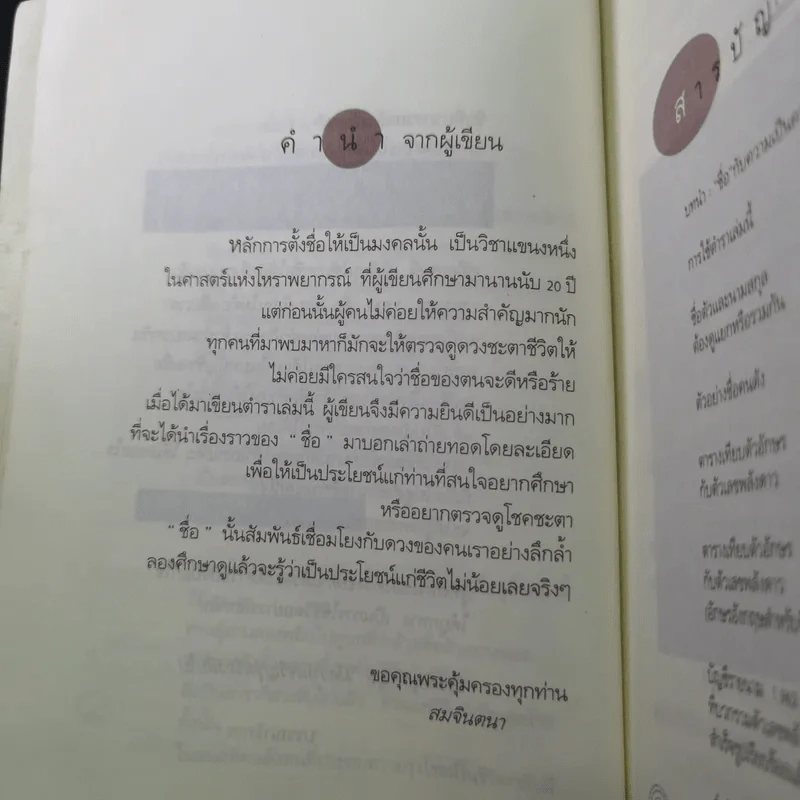 คำนำ จากผู้เขียน
หลักการตั้งชื่อให้เป็นมงคลนั้น เป็นวิชาแขนงหนึ่ง
ในศาสตร์แห่งโหราพยากรณ์ ที่ผู้เขียนศึกษามานานนับ 20 ปี
แต่ก่อนนั้นผู้คนไม่ค่อยให้ความสำคัญมากนัก
ทุกคนที่มาพบมาหาก็มักจะให้ตรวจดูดวงชะตาชีวิตให้
ไม่ค่อยมีใครสนใจว่าชื่อของตนจะดีหรือร้าย
เมื่อได้มาเขียนตำราเล่มนี้ ผู้เขียนจึงมีความยินดีเป็นอย่างมาก
ที่จะได้นำเรื่องราวของ “ ชื่อ ” มาบอกเล่าถ่ายทอดโดยละเอียด
เพื่อให้เป็นประโยชน์แก่ท่านที่สนใจอยากศึกษา
หรืออยากตรวจดูโชคชะตา
“ ชื่อ ” นั้นสัมพันธ์เชื่อมโยงกับดวงของคนเราอย่างลึกล้ำ
ลองศึกษาดูแล้วจะรู้ว่าเป็นประโยชน์แก่ชีวิตไม่น้อยเลยจริงๆ
ขอคุณพระคุ้มครองทุกท่าน
สมจินตนา
สารบัญ
บทนำ : "ชื่อ" กับความเป็น
การใช้ตำราเล่มนี้
ชื่อตัวและนามสกุล
ต้องดูแยกหรือรวมกัน
ตัวอย่างชื่อคนดัง
ตารางเทียบตัวอักษร
กับตัวเลขพลังดาว
ตารางเทียบตัวอักษร
กับตัวเลขพลังดาว
(อักษรอังกฤษสำหรับ